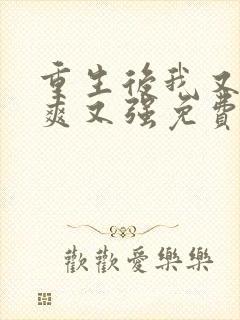 重生後我又
爽又强免費
歡歡愛樂樂